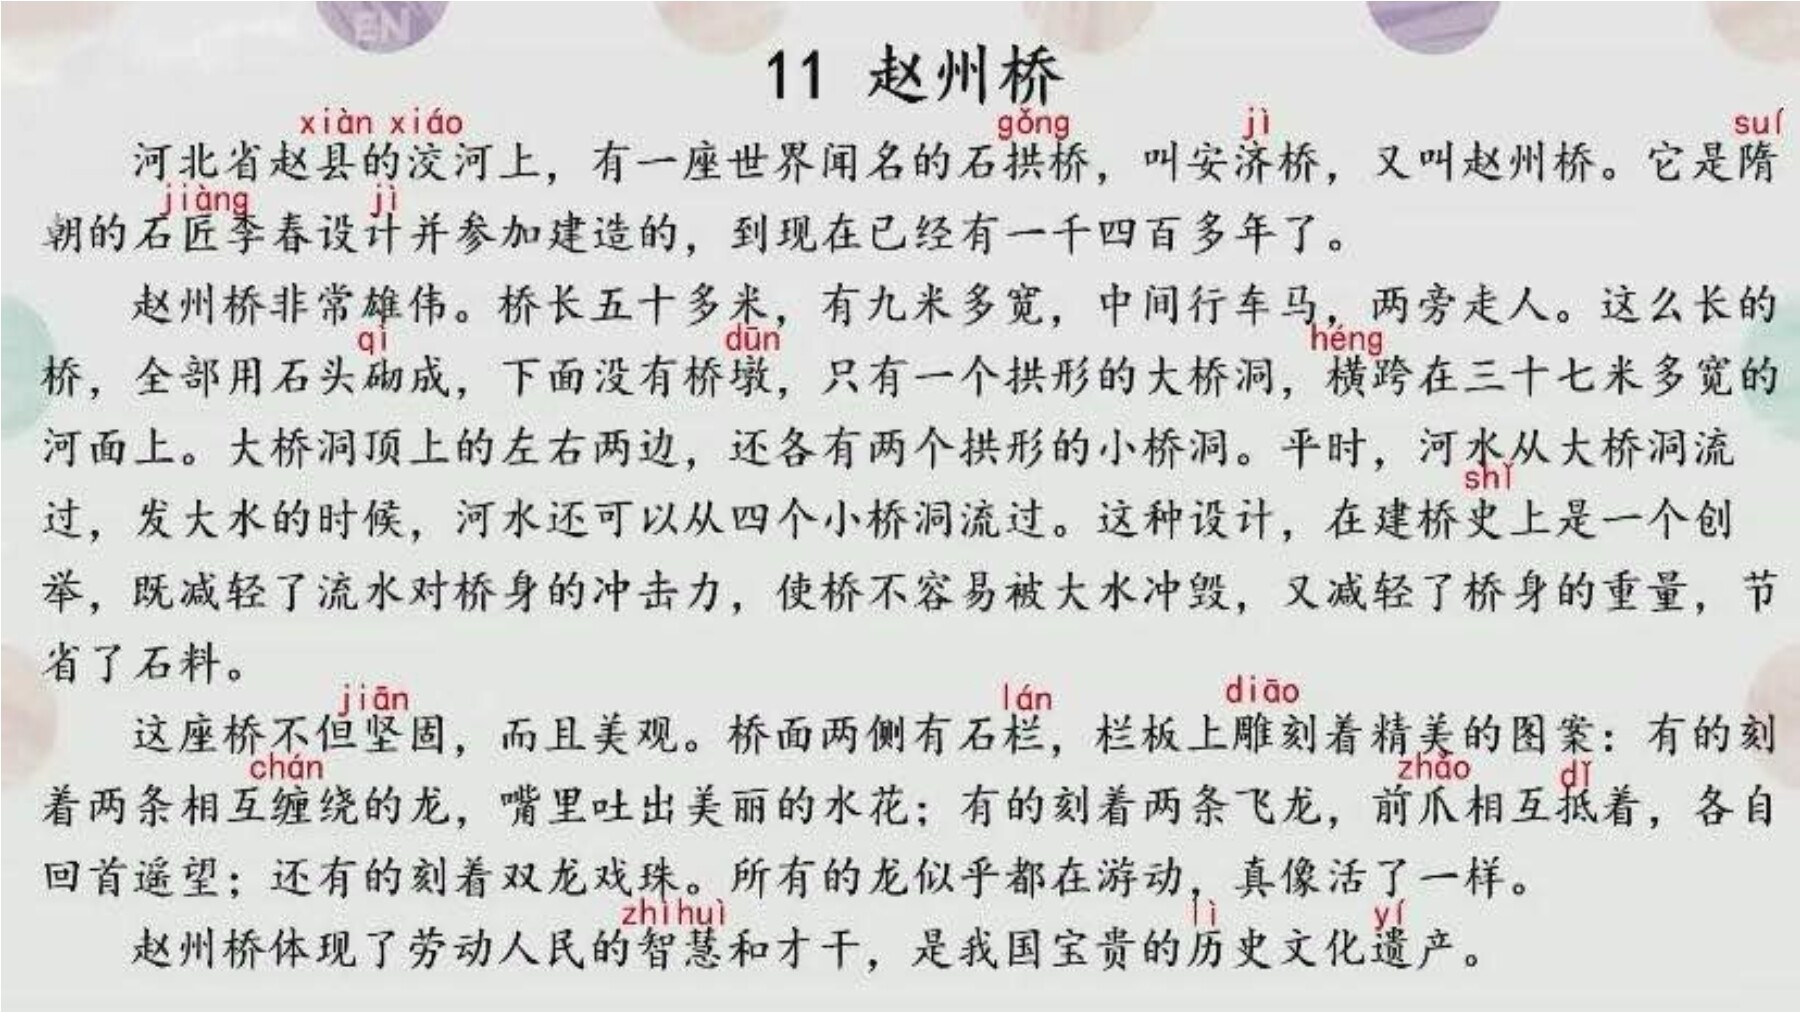 EN
11 赵州桥
xiàn xiáo gǒng jì suí
河北省赵县的洨河上，有一座世界闻名的石拱桥，叫安济桥，又叫赵州桥。它是隋
jiàng jì
朝的石匠李春设计并参加建造的，到现在已经有一千四百多年了。
赵州桥非常雄伟。桥长五十多米，有九米多宽，中间行车马，两旁走人。这么长的
qì dūn héng
桥，全部用石头砌成，下面没有桥墩，只有一个拱形的大桥洞，横跨在三十七米多宽的
河面上。大桥洞顶上的左右两边，还各有两个拱形的小桥洞。平时，河水从大桥洞流
shǐ
过，发大水的时候，河水还可以从四个小桥洞流过。这种设计，在建桥史上是一个创
举，既减轻了流水对桥身的冲击力，使桥不容易被大水冲毁，又减轻了桥身的重量，节
省了石料。
jiān lán diāo
这座桥不但坚固，而且美观。桥面两侧有石栏，栏板上雕刻着精美的图案：有的刻
chán zhǎo dǐ
着两条相互缠绕的龙，嘴里吐出美丽的水花；有的刻着两条飞龙，前爪相互抵着，各自
回首遥望；还有的刻着双龙戏珠。所有的龙似乎都在游动，真像活了一样。
zhìhuì lì yí
赵州桥体现了劳动人民的智慧和才干，是我国宝贵的历史文化遗产。